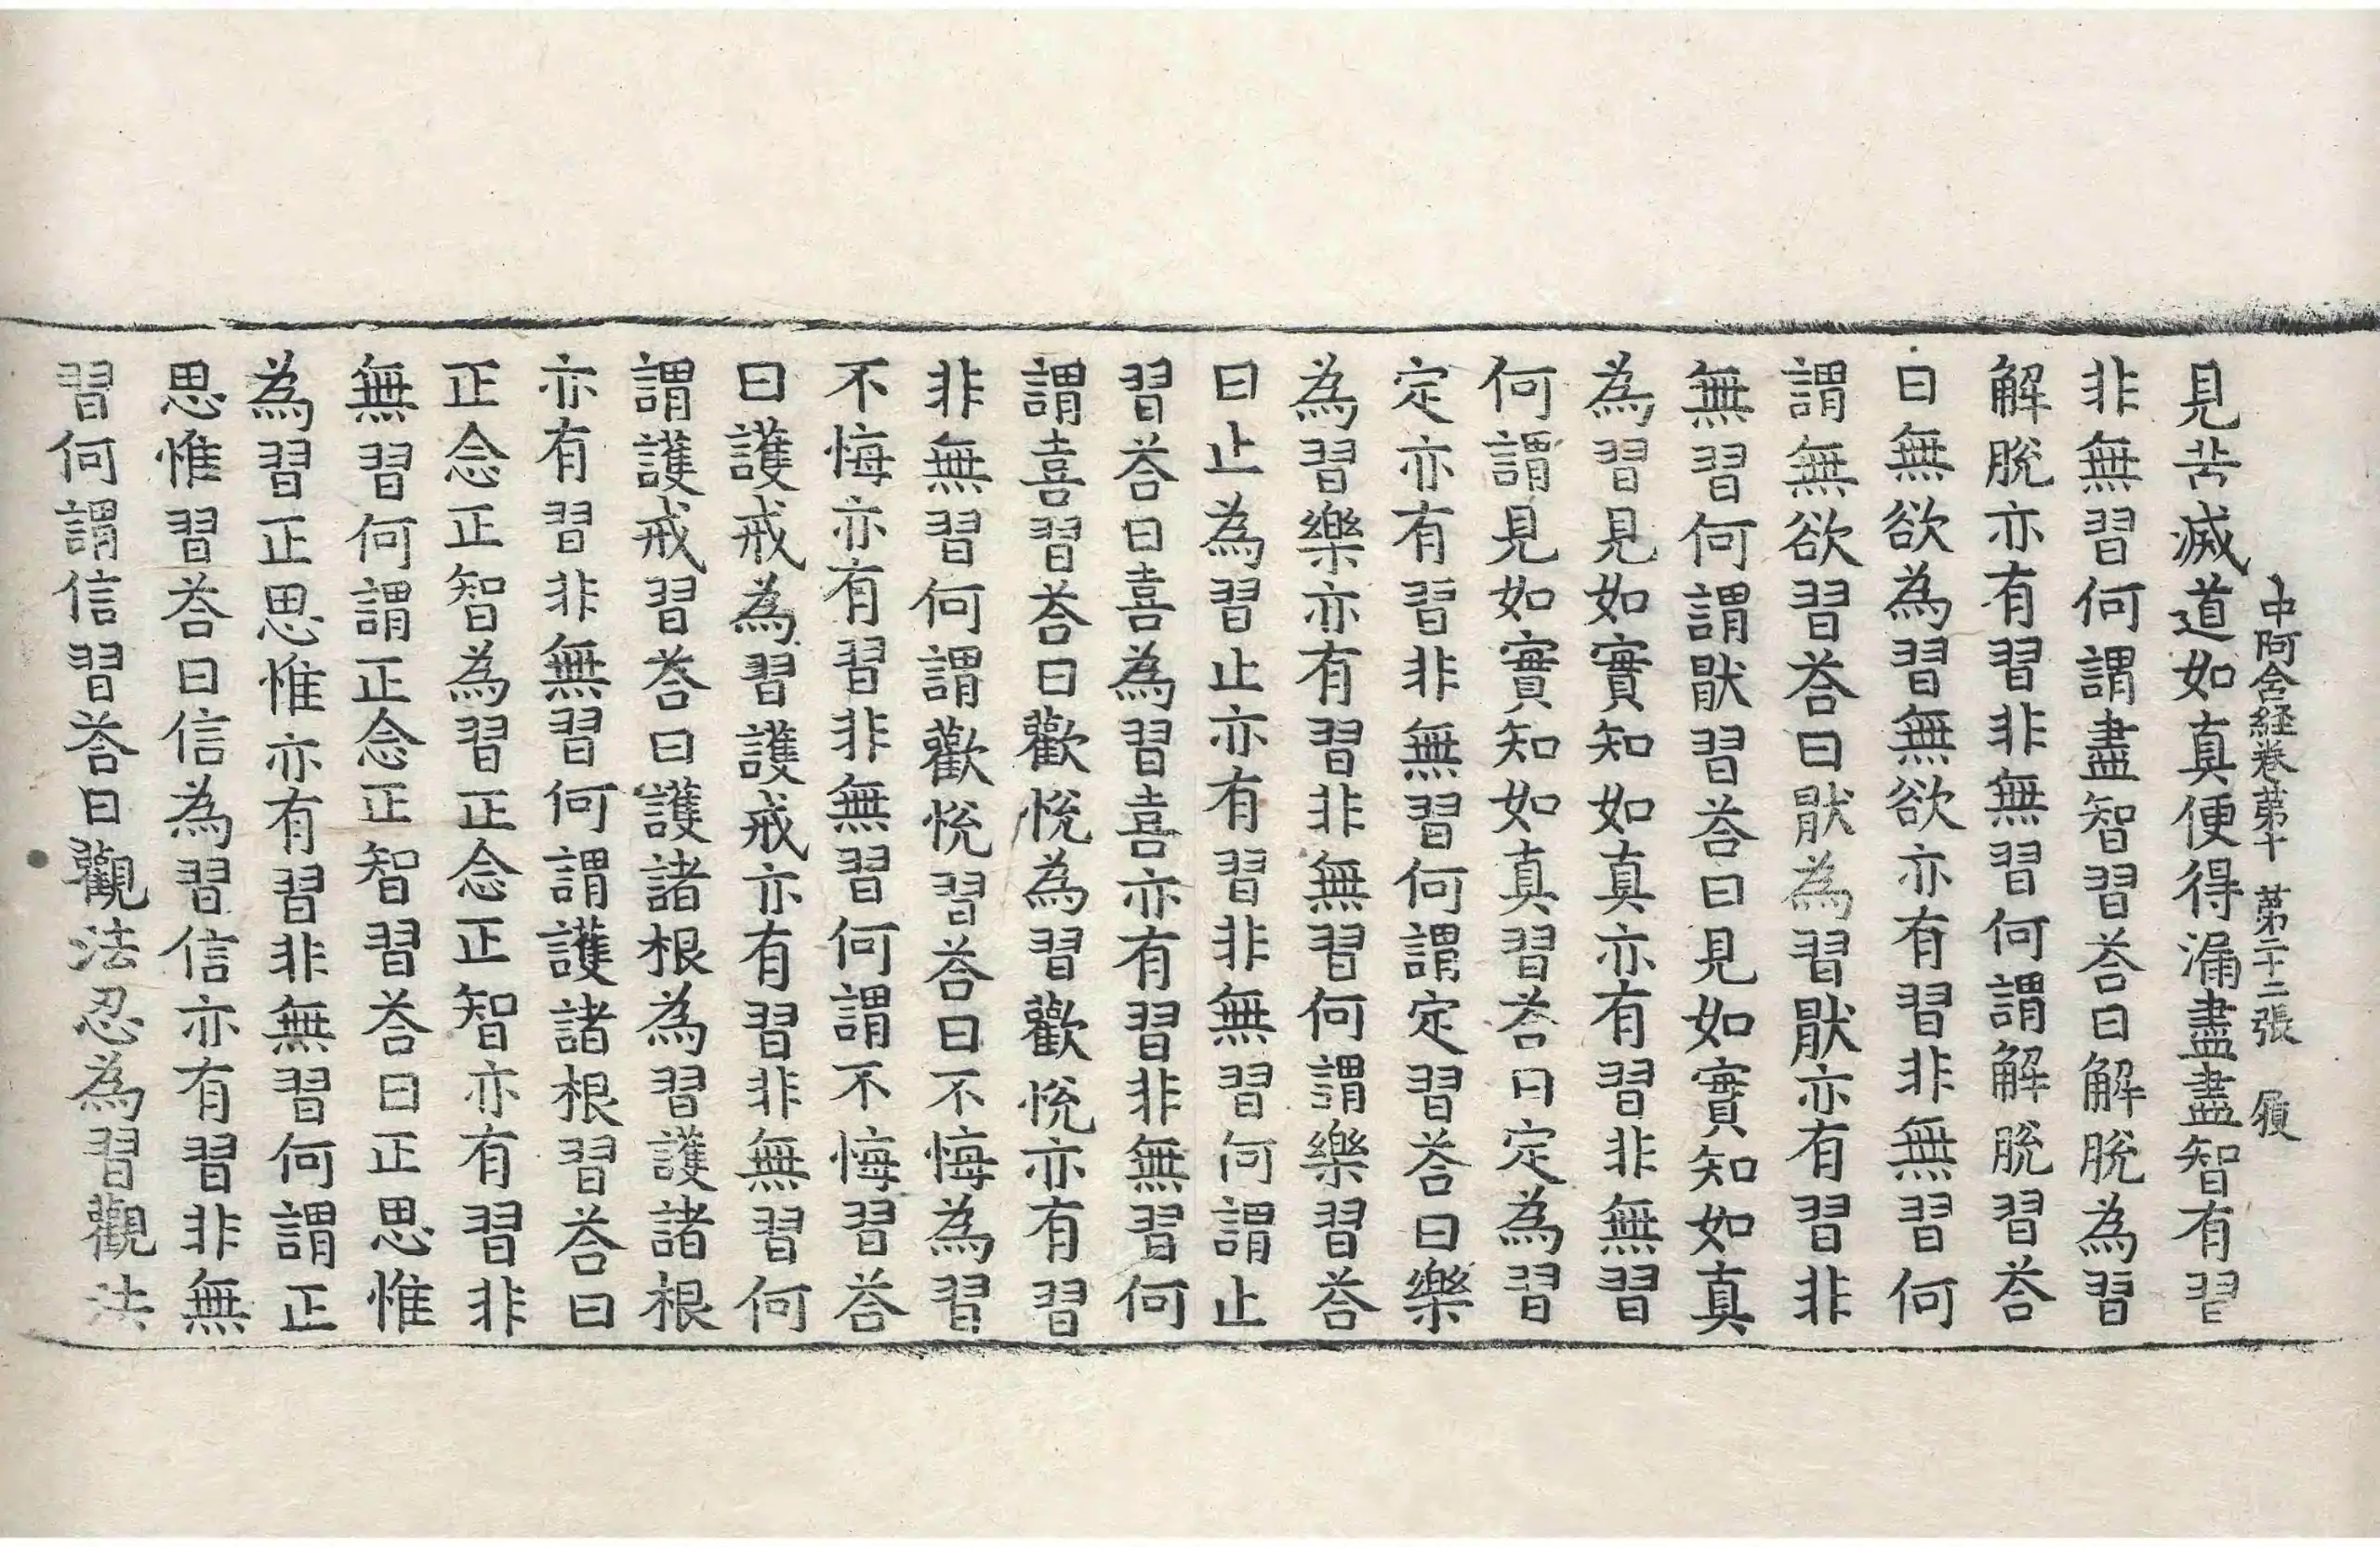 中阿含経卷苐十　苐二十二張　履
見苦滅道如真便得漏盡盡智有習
非無習何謂盡智習荅曰解脫為習
解脫亦有習非無習何謂解脫習荅
曰無欲為習無欲亦有習非無習何
謂無欲習荅曰猒為習猒亦有習非
無習何謂猒習荅曰見如實知如真
為習見如實知如真亦有習非無習
何謂見如實知如真習荅曰定為習
定亦有習非無習何謂定習荅曰樂
為習樂亦有習非無習何謂樂習荅
曰止為習止亦有習非無習何謂止
習荅曰喜為習喜亦有習非無習何
謂喜習荅曰歡恱為習歡恱亦有習
非無習何謂歡恱習荅曰不悔為習
不悔亦有習非無習何謂不悔習荅
曰護戒為習護戒亦有習非無習何
謂護戒習荅曰護諸根為習護諸根
亦有習非無習何謂護諸根習荅曰
正念正智為習正念正智亦有習非
無習何謂正念正智習荅曰正思惟
為習正思惟亦有習非無習何謂正
思惟習荅曰信為習信亦有習非無
習何謂信習荅曰觀法忍為習觀法